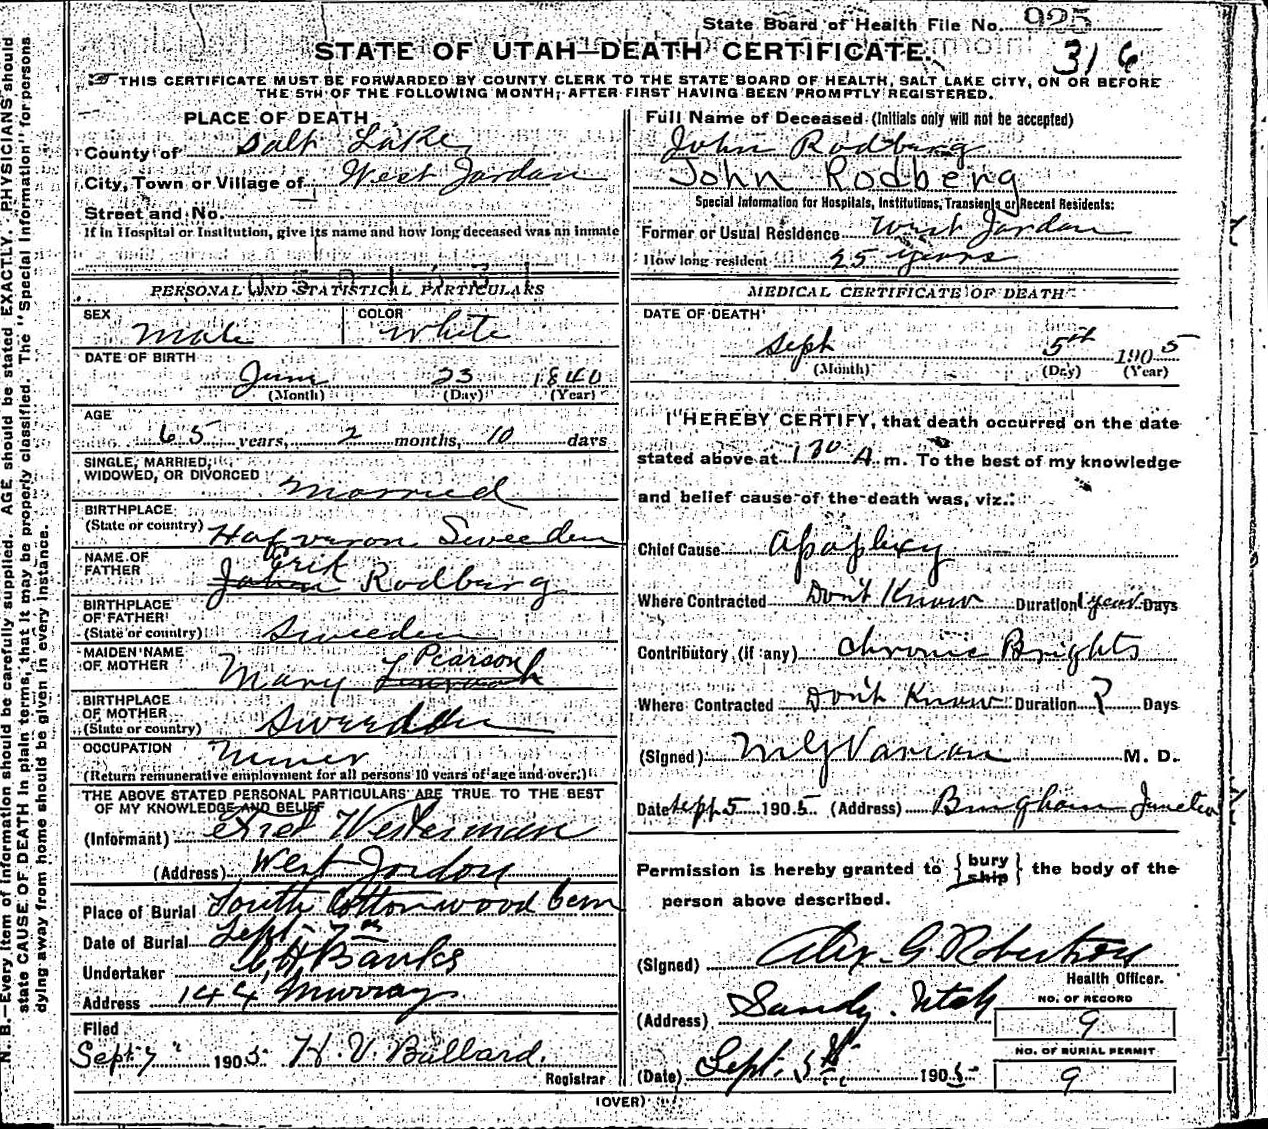 State Board of Health File No. 925
STATE OF UTAH—DEATH CERTIFICATE.
316
THIS CERTIFICATE MUST BE FORWARDED BY COUNTY CLERK TO THE STATE BOARD OF HEALTH, SALT LAKE CITY, ON OR BEFORE
THE 5TH OF THE FOLLOWING MONTH, AFTER FIRST HAVING BEEN PROMPTLY REGISTERED.
PLACE OF DEATH
County of Salt Lake
City, Town or Village of West Jordan
Street and No.
If in Hospital or Institution, give its name and how long deceased was an inmate
PERSONAL AND STATISTICAL PARTICULARS
SEX Male COLOR White
DATE OF BIRTH
June 23 1840
(Month) (Day) (Year)
AGE
65 years, 2 months, 10 days
SINGLE, MARRIED,
WIDOWED, OR DIVORCED Married
BIRTHPLACE
(State or country) Hafveron Sweeden
NAME OF
FATHER John Erik Rodburg
BIRTHPLACE
OF FATHER
(State or country) Sweeden
MAIDEN NAME
OF MOTHER Mary Pearson
BIRTHPLACE
OF MOTHER
(State or country) Sweedden
OCCUPATION Miner
(Return remunerative employment for all persons 10 years of age and over.)
THE ABOVE STATED PERSONAL PARTICULARS ARE TRUE TO THE BEST
OF MY KNOWLEDGE AND BELIEF
(Informant) Westerman
(Address) West Jordon
Place of Burial South Cottonwood Cem
Date of Burial Sept 7th
Undertaker Banks
Address 144 Murray
Filed
Sept 7 1905 H. V. Ballard.
Registrar
Full Name of Deceased (Initials only will not be accepted)
John Rodberg
John Rodberg
Special Information for Hospitals, Institutions, Transients or Recent Residents:
Former or Usual Residence West Jordan
How long resident 25 years
MEDICAL CERTIFICATE OF DEATH
DATE OF DEATH
Sept 5th 1905
(Month) (Day) (Year)
I HEREBY CERTIFY, that death occurred on the date
stated above at 130 A. m. To the best of my knowledge
and belief cause of the death was, viz.:
Chief Cause Apoplexy
Where Contracted Don't Know Duration 1 year Days
Contributory (if any) Chronic Brights
Where Contracted Don't Know Duration ? Days
(Signed) M G Varian M. D.
Date Sept 5 1905 (Address) Bingham Junction
Permission is hereby granted to { bury ship } the body of the
person above described.
(Signed) Alex. G Robertson
Health Officer.
(Address) Sandy. Utah
NO. OF RECORD
9
NO. OF BURIAL PERMIT
9
(Date) Sept. 5th 1905
(OVER)
N. B.—Every item of information should be carefully supplied. AGE should be stated EXACTLY. PHYSICIANS should
state CAUSE OF DEATH in plain terms, that it may be properly classified. The "Special Information" for persons
dying away from home should be given in every instance.